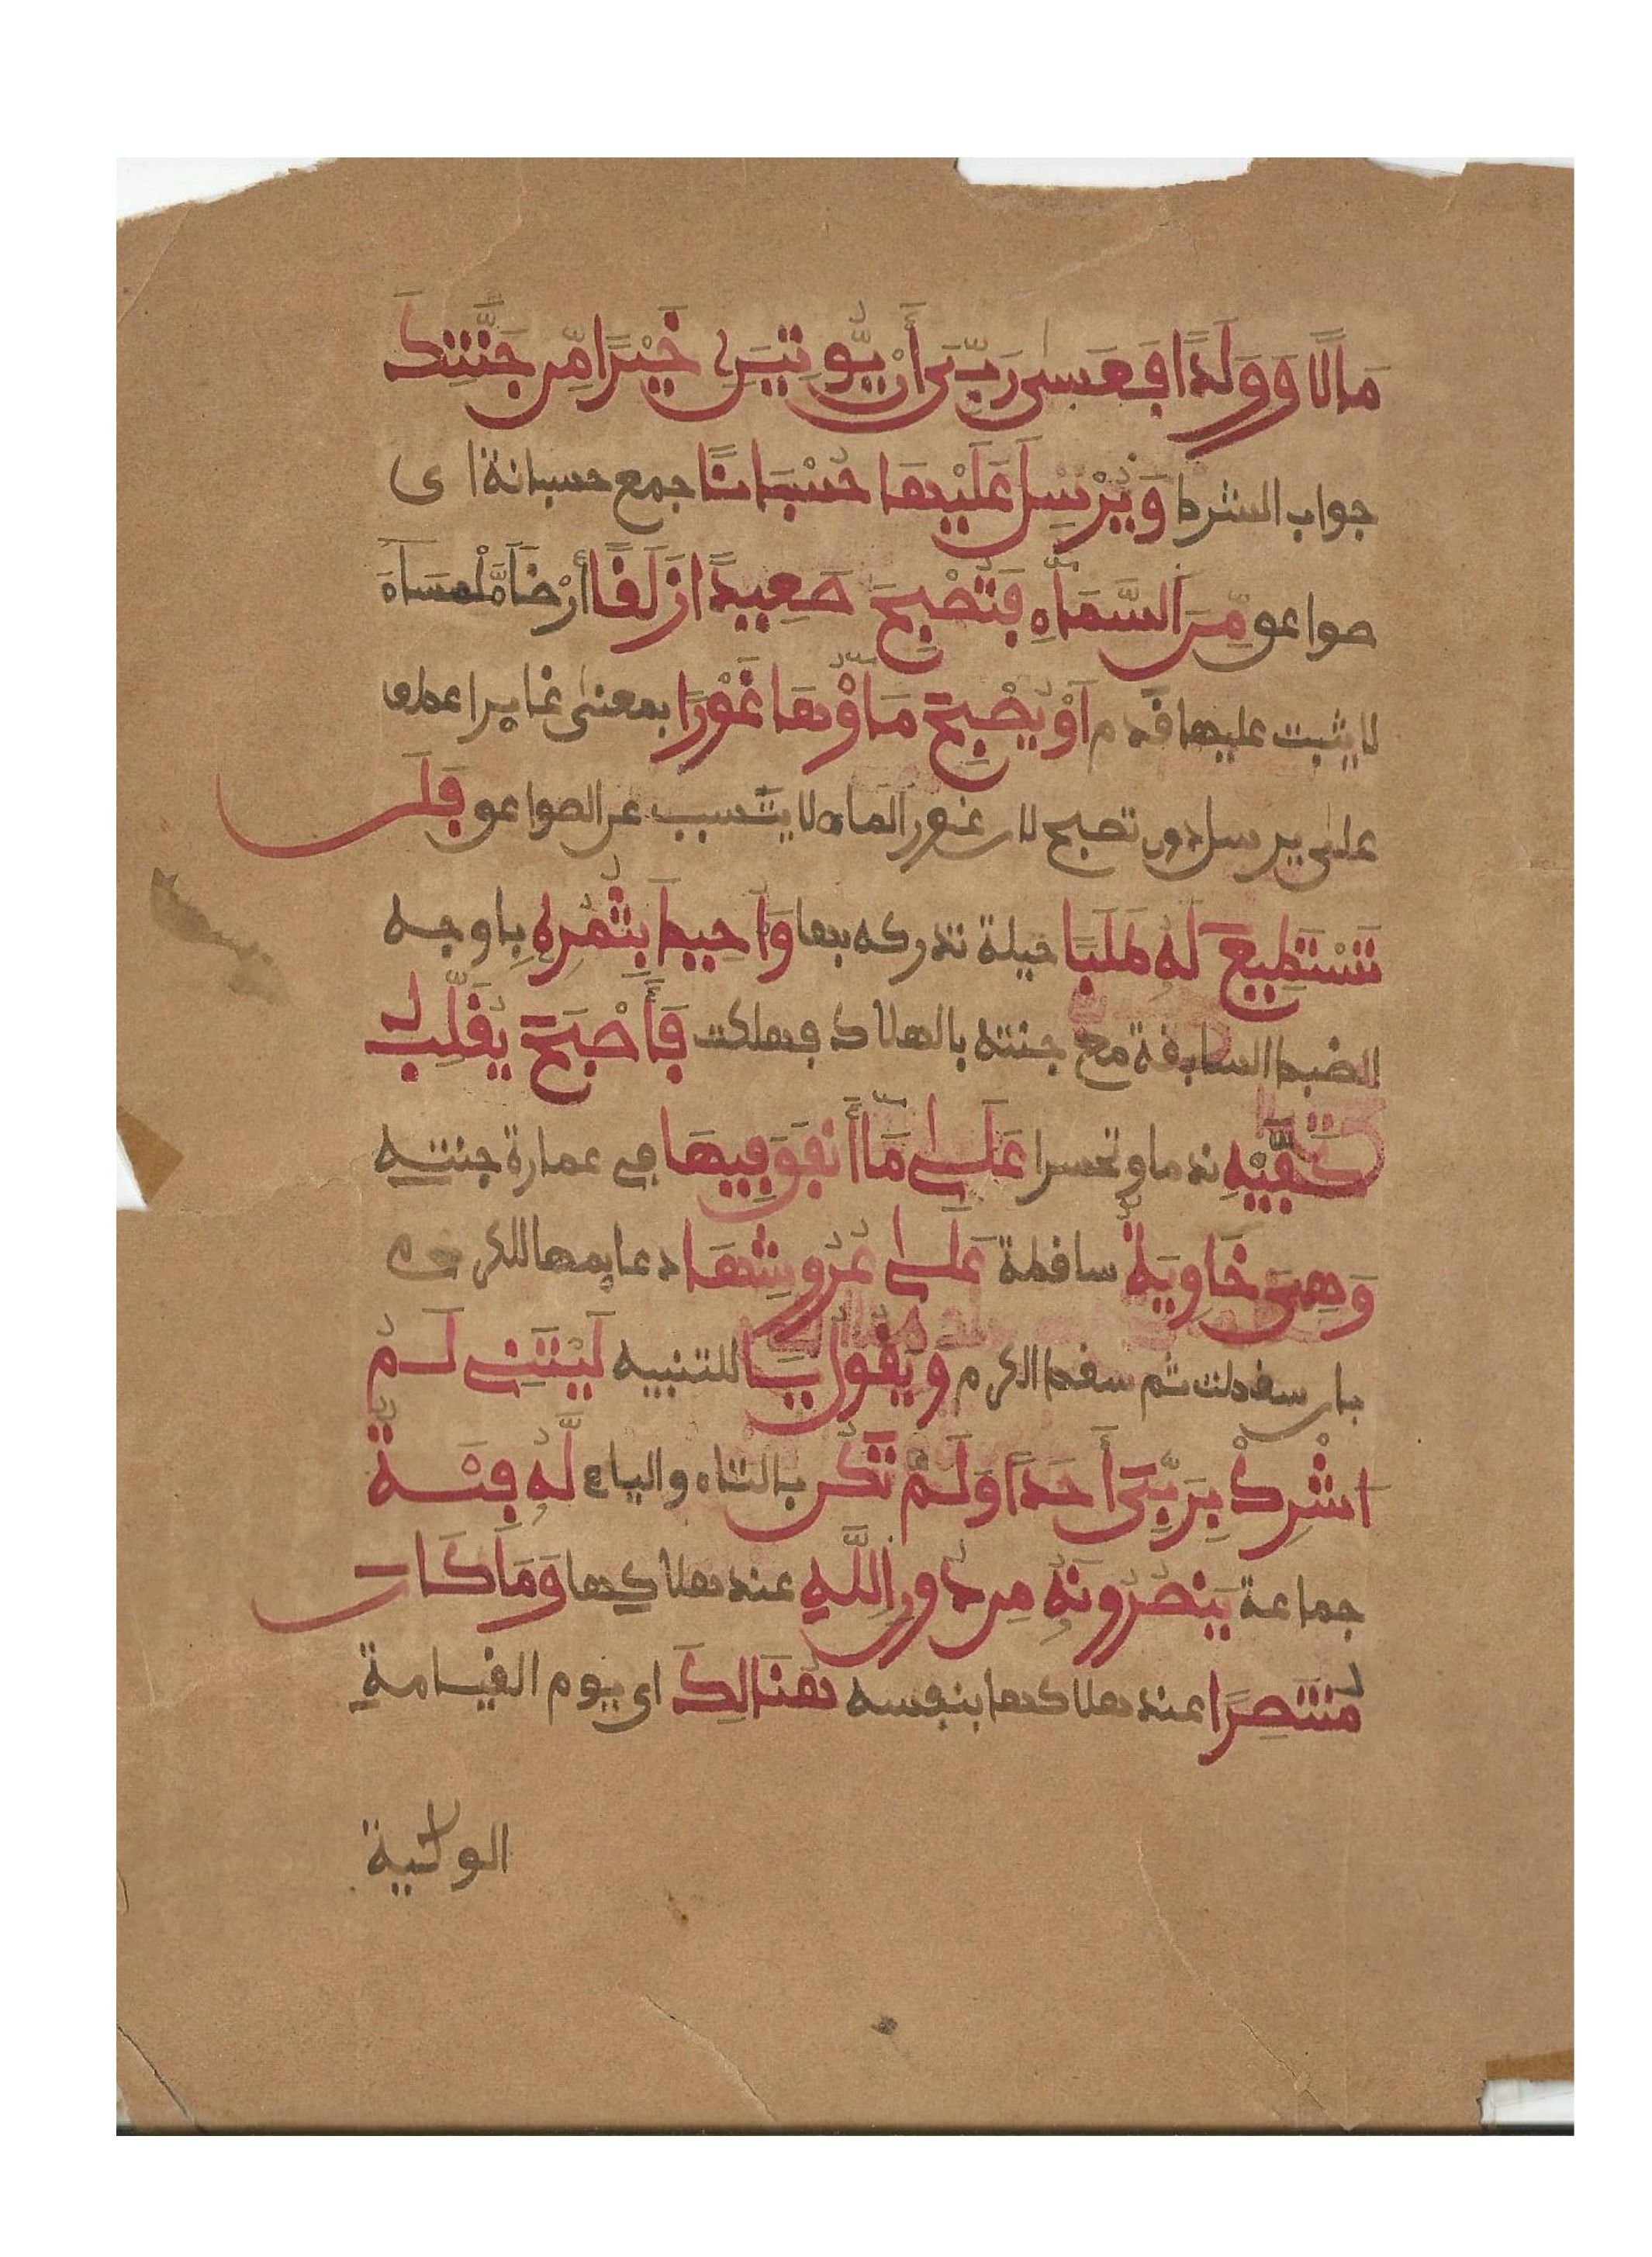 مَالًا وَوَلَدًا فَعَسَىٰ رَبِّىَ أَنْ يُّوتِيَنِ خَيْرًا مِّن جَنَّتِكَ
جواب الشرط وَيُرْسِلَ عَلَيْهَا حُسْبَانًا جمع حسبانة اى
صواعق مِّنَ السَّمَاءِ فَتُصْبِحَ صَعِيدًا زَلَقًا أَرْضًا مَلْسَاءَ
لا يثبت عليها قدم اَوْ يُصْبِحَ مَاؤُهَا غَوْرًا بمعنى غايرا عطف
على يرسل دون تصبح لان غور الماء لا يتسبب عن الصواعق فَلَن
تَسْتَطِيعَ لَهُ طَلَبًا حيلة تدركه بها وَأُحِيطَ بِثُمُرِهِ باوجه
الضبط السابقة مع جنته بالهلاك فهلكت فَأَصْبَحَ يُقَلِّبُ
كَفَّيْهِ ندما وتحسرا عَلَىٰ مَا أَنفَقَ فِيهَا في عمارة جنته
وَهِىَ خَاوِيَةٌ ساقطة عَلَىٰ عُرُوشِهَا دعايمها للكرم
بان سقطت ثم سقط الكرم وَيَقُولُ يَا للتنبيه لَيْتَنِى لَمْ
اُشْرِكْ بِرَبِّىَ أَحَدًا وَلَمْ تَكُن بالتاء والياء لَّهُ فِئَةٌ
جماعة يَنصُرُونَهُ مِن دُونِ اللَّهِ عند هلاكها وَمَا كَانَ
مُنتَصِرًا عند هلاكها بنفسه هُنَالِكَ اى يوم القيامة
الولاية